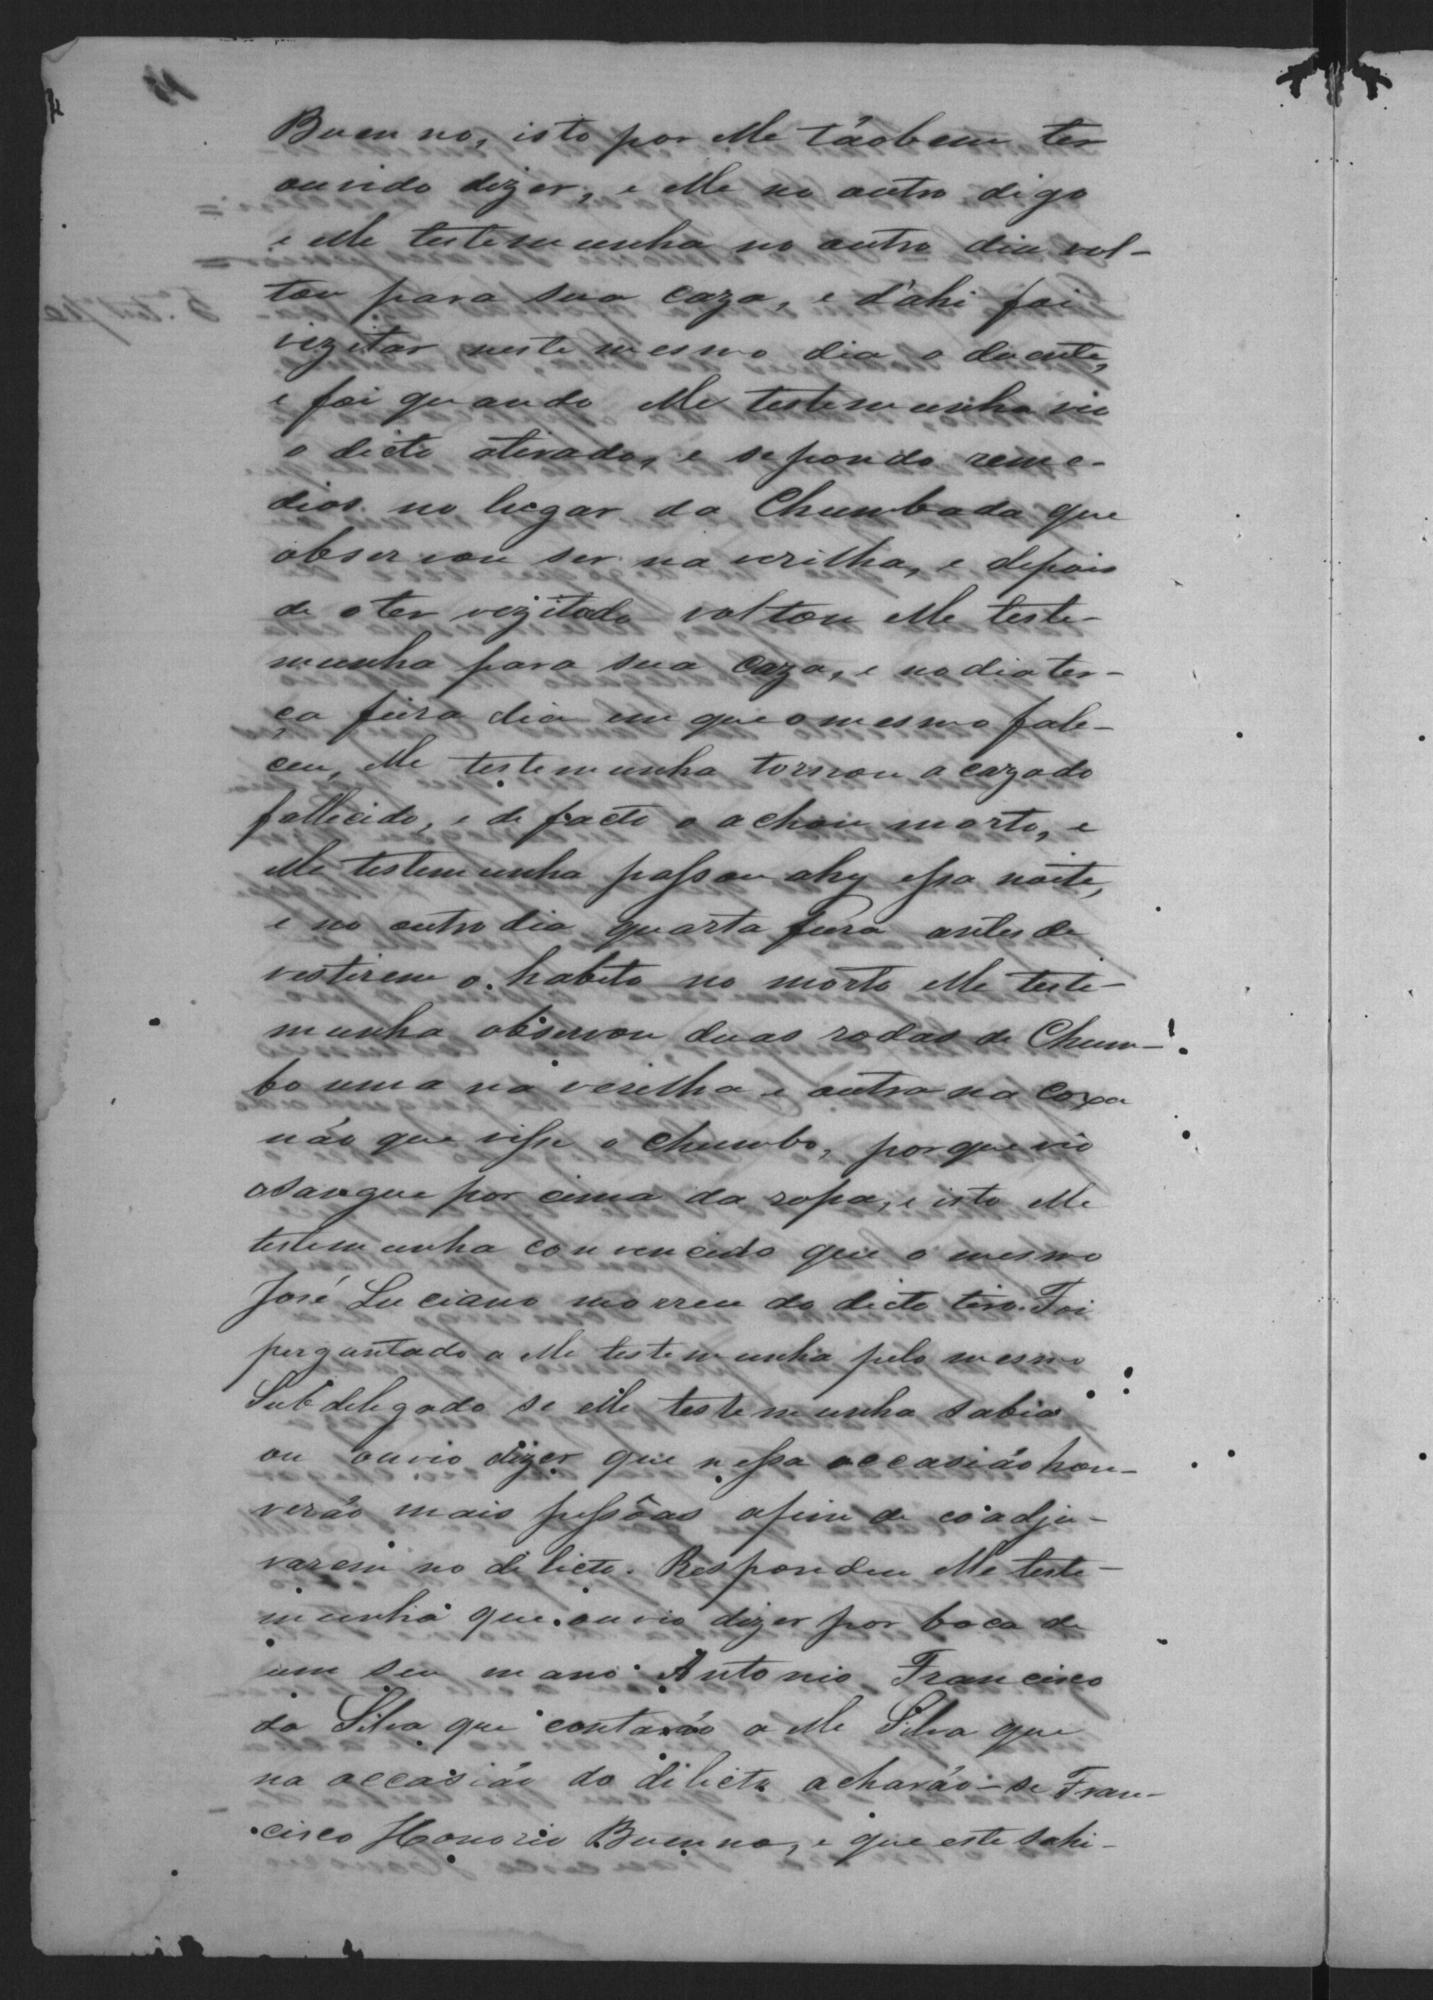 Buenno, isto por elle tãobem ter
ouvido dizer, e elle no outro digo
e elle testemunha no outro dia vol-
tou para sua caza, e d'ahi foi
vizitar neste mesmo dia o doente,
e foi quando elle testemunha vio
o dicto atirado, e se pondo reme-
dios no lugar da Chumbada que
observou ser na verilha, e depois
de o ter vizitado voltou elle teste-
munha para sua caza, e no dia ter-
ça feira dia em que o mesmo fale-
ceu, elle testemunha tornou a caza do
fallicido, e de facto o achou morto, e
elle testemunha passou ahy essa noite,
e no outro dia quarta feira antes de
vestirem o habito no morto elle teste-
munha observou duas rodas de Chum-
bo uma na verilha e outra na coxa
não que visse o chumbo, porque vio
o sangue por cima da ropa, e isto elle
testemunha convencido que o mesmo
José Luciano morreu do dicto tiro. Foi
perguntado a elle testemunha pelo mesmo
Subdelegado se elle testemunha sabia
ou ouvio dizer que nessa occasião hou-
verão mais pessôas afim de coadju-
varem no dilicto. Respondeu elle teste-
munha que ouvio dizer por boca de
um seu mano Antonio Francisco
da Silva que contarão a elle Silva que
na occasião do dilicto acharão-se Fran-
cisco Honorio Buenno, e que este sahi-